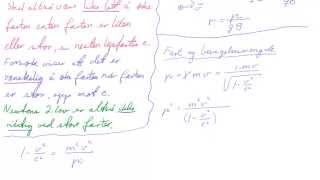 Skal alltid være like lett å øke
farten enten farten er liten
eller stor, er nesten lysfarten c.
Formelen viser at det er
vanskelig å øke farten når farten
er stor, opp mot c.
Newtons 2. lov er altså ikke
riktig ved store farter.
1 - v²/c² = m²v²/p²
Fart og bevegelsesmengde
p = γ m v = 1·mv/√(1 - v²/c²)
p² = m²v²/(1 - v²/c²)